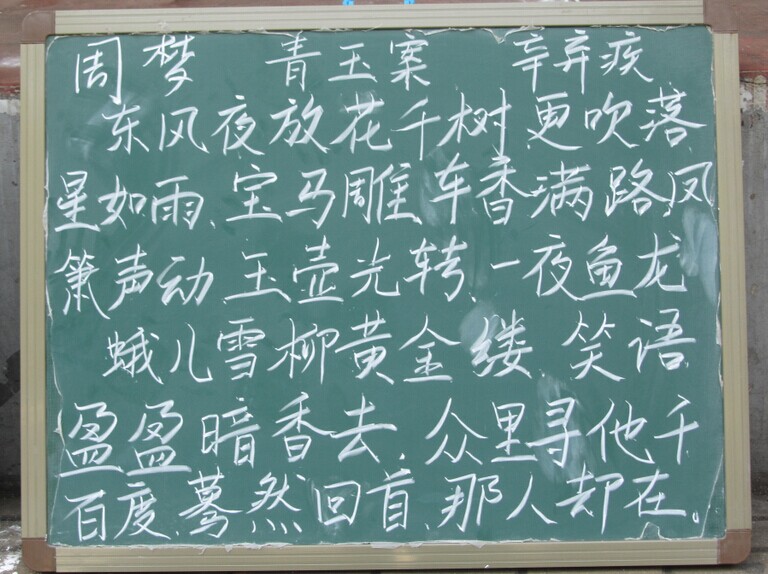 周梦 青玉案 辛弃疾
东风夜放花千树更吹落
星如雨、宝马雕车香满路凤
箫声动、玉壶光转、一夜鱼龙
蛾儿雪柳黄金缕 笑语
盈盈暗香去、众里寻他千
百度、蓦然回首、那人却在。